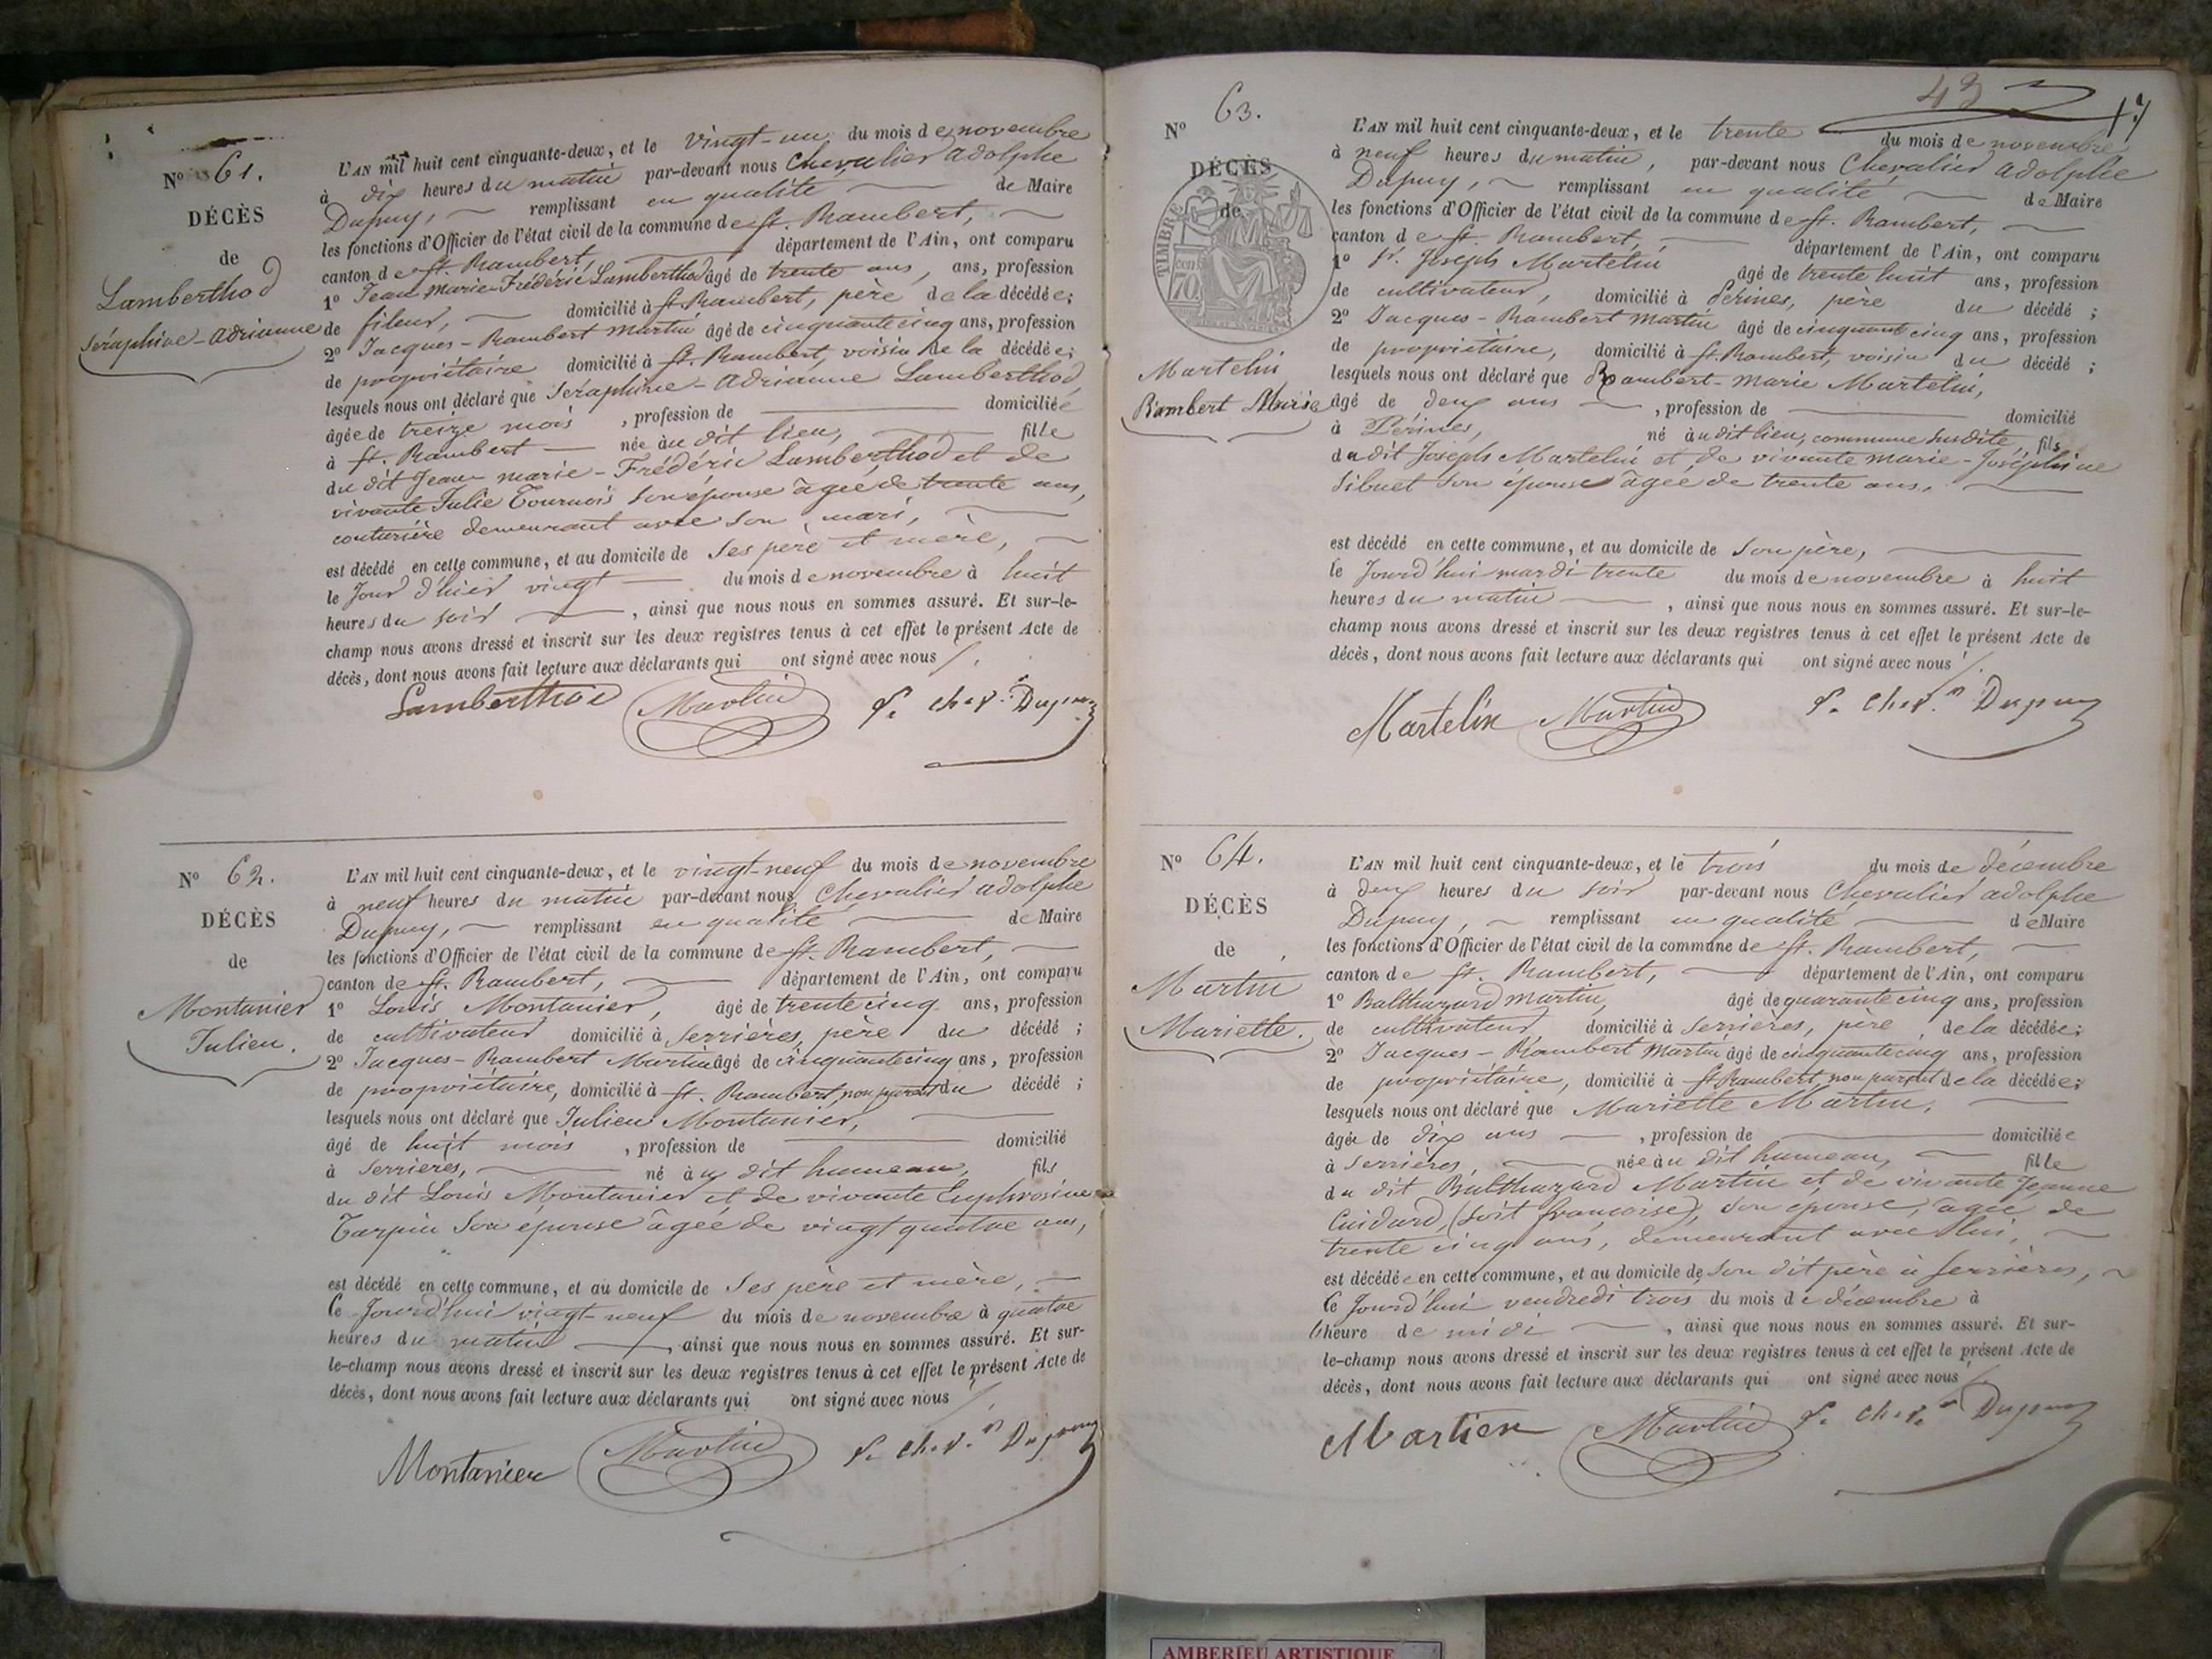 No 61.
DÉCÈS
de
Lamberthod
Séraphine-Adrianne
L'AN mil huit cent cinquante-deux, et le vingt-un du mois de novembre
à dix heures du matin par-devant nous Chevalier adolphe
Dupuy, remplissant en qualité de Maire
les fonctions d'Officier de l'état civil de la commune de St. Rambert,
canton de St. Rambert, département de l'Ain, ont comparu
1o Jean Marie-Frédéric Lamberthod âgé de trente ans, ans, profession
de fileur, domicilié à St. Rambert, père de la décédée;
2o Jacques-Rambert Martin âgé de cinquante cinq ans, profession
de propriétaire domicilié à St. Rambert, voisin de la décédée;
lesquels nous ont déclaré que Séraphine-Adrianne Lamberthod,
âgée de treize mois, profession de domiciliée
à St. Rambert née au dit lieu, fille
du dit Jean-marie-Frédéric Lamberthod et de
vivante Julie Tournois son épouse âgée de trente ans,
couturière demeurant avec son mari,
est décédé en cette commune, et au domicile de Ses père et mère,
le Jour d'hier vingt du mois de novembre à huit
heures du soir, ainsi que nous nous en sommes assuré. Et sur-le-
champ nous avons dressé et inscrit sur les deux registres tenus à cet effet le présent Acte de
décès, dont nous avons fait lecture aux déclarants qui ont signé avec nous
Lamberthod Martin Dupuy
No 62.
DÉCÈS
de
Montanier
Julien.
L'AN mil huit cent cinquante-deux, et le vingt-neuf du mois de novembre
à neuf heures du matin par-devant nous Chevalier adolphe
Dupuy, remplissant en qualité de Maire
les fonctions d'Officier de l'état civil de la commune de St. Rambert,
canton de St. Rambert, département de l'Ain, ont comparu
1o Louis Montanier, âgé de trente cinq ans, profession
de cultivateur domicilié à Serrières, père du décédé;
2o Jacques-Rambert Martin âgé de cinquante cinq ans, profession
de propriétaire, domicilié à St. Rambert, non parent du décédé;
lesquels nous ont déclaré que Julien Montanier,
âgé de huit mois, profession de domicilié
à Serrières, né au dit hameau, fils
du dit Louis Montanier et de vivante Euphrosine
Tarpin Son épouse âgée de vingt quatre ans,
est décédé en cette commune, et au domicile de Ses père et mère,
Ce Jourd'hui vingt-neuf du mois de novembre à quatre
heures du matin, ainsi que nous nous en sommes assuré. Et sur-
le-champ nous avons dressé et inscrit sur les deux registres tenus à cet effet le présent Acte de
décès, dont nous avons fait lecture aux déclarants qui ont signé avec nous
Montanier Martin Dupuy
43
No 63.
DÉCÈS
de
TIMBRE
70
Martelin
Rambert Marie
L'AN mil huit cent cinquante-deux, et le trente du mois de novembre
à neuf heures du matin, par-devant nous Chevalier adolphe
Dupuy, remplissant en qualité de Maire
les fonctions d'Officier de l'état civil de la commune de St. Rambert,
canton de St. Rambert, département de l'Ain, ont comparu
1o Sr. Joseph Martelin âgé de trente huit ans, profession
de cultivateur, domicilié à Serines, père du décédé;
2o Jacques-Rambert Martin âgé de cinquante cinq ans, profession
de propriétaire, domicilié à St. Rambert, voisin du décédé;
lesquels nous ont déclaré que Rambert-Marie Martelin,
âgé de deux ans, profession de domicilié
à Pérines, né au dit lieu, commune susdite, fils
du dit Joseph Martelin et de vivante Marie-Joséphine
Sibuet Son épouse âgée de trente ans,
est décédé en cette commune, et au domicile de Son père,
le Jourd'hui mardi trente du mois de novembre à huit
heures du matin, ainsi que nous nous en sommes assuré. Et sur-le-
champ nous avons dressé et inscrit sur les deux registres tenus à cet effet le présent Acte de
décès, dont nous avons fait lecture aux déclarants qui ont signé avec nous
Martelin Martin Dupuy
No 64.
DÉCÈS
de
Martin
Mariette.
L'AN mil huit cent cinquante-deux, et le trois du mois de décembre
à deux heures du soir par-devant nous Chevalier adolphe
Dupuy, remplissant en qualité de Maire
les fonctions d'Officier de l'état civil de la commune de St. Rambert,
canton de St. Rambert, département de l'Ain, ont comparu
1o Balthazard Martin, âgé de quarante cinq ans, profession
de cultivateur domicilié à Serrières, père de la décédée;
2o Jacques-Rambert Martin âgé de cinquante cinq ans, profession
de propriétaire, domicilié à St Rambert, non parent de la décédée;
lesquels nous ont déclaré que Mariette Martin,
âgée de dix ans, profession de domiciliée
à Serrières, née au dit hameau, fille
du dit Balthazard Martin et de vivante Jeanne
Cuidard, (soit françoise), son épouse, agée de
trente cinq ans, demeurant avec lui,
est décédée en cette commune, et au domicile de Son dit père à Serrières,
Ce Jourd'hui vendredi trois du mois de décembre à
heure de midi, ainsi que nous nous en sommes assuré. Et sur-
le-champ nous avons dressé et inscrit sur les deux registres tenus à cet effet le présent Acte de
décès, dont nous avons fait lecture aux déclarants qui ont signé avec nous
Martien Martin Dupuy
AMBERIEU ARTISTIQUE